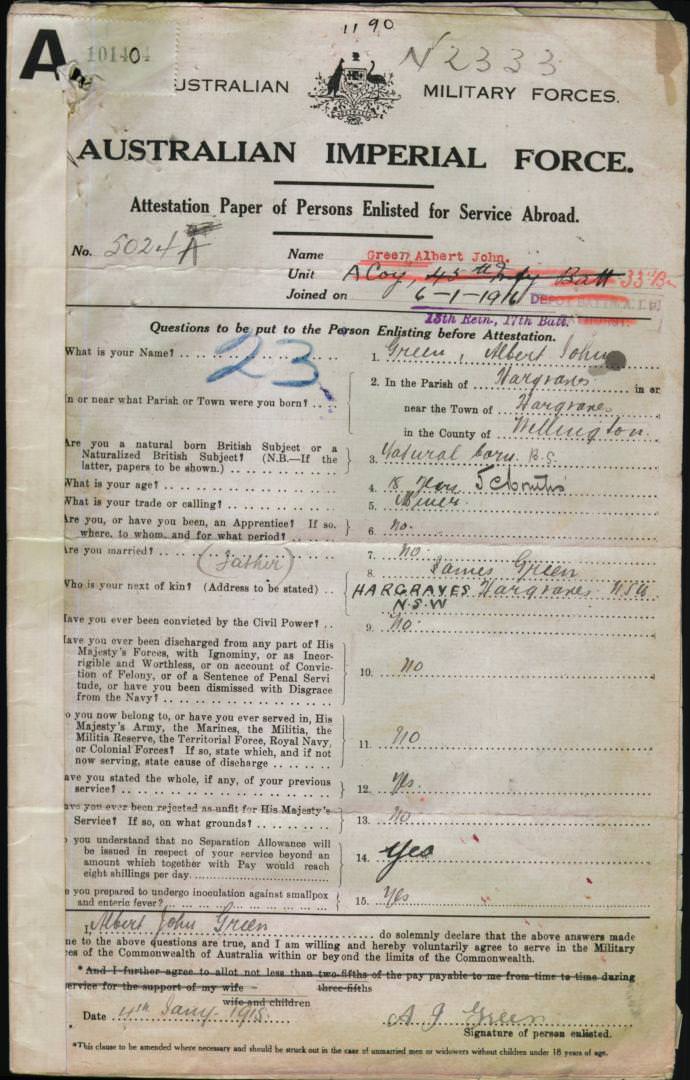 1190
N 2333
A
101404
USTRALIAN MILITARY FORCES.
AUSTRALIAN IMPERIAL FORCE.
Attestation Paper of Persons Enlisted for Service Abroad.
No. 5024 A
Name Green, Albert John.
Unit A Coy, 45th Batt 33rd Bn
Joined on 6-1-1916 DEPOT
13th Rein, 17th Batt.
Questions to be put to the Person Enlisting before Attestation.
23
What is your Name? 1. Green, Albert John
In or near what Parish or Town were you born? 2. In the Parish of Hargraves in or
near the Town of Hargraves
in the County of Wellington.
Are you a natural born British Subject or a
Naturalized British Subject? (N.B.—If the
latter, papers to be shown.) 3. Natural born B.S.
What is your age? 4. 18 Years 5 Months
What is your trade or calling? 5. Miner.
Are you, or have you been, an Apprentice? If so,
where, to whom, and for what period? 6. no.
Are you married? 7. no.
(Father)
Who is your next of kin? (Address to be stated) 8. James Green
HARGRAVES Hargraves NSW
N.S.W
Have you ever been convicted by the Civil Power? 9. No
Have you ever been discharged from any part of His
Majesty's Forces, with Ignominy, or as Incor-
rigible and Worthless, or on account of Convic-
tion of Felony, or of a Sentence of Penal Servi
tude, or have you been dismissed with Disgrace
from the Navy? 10. No
o you now belong to, or have you ever served in, His
Majesty's Army, the Marines, the Militia, the
Militia Reserve, the Territorial Force, Royal Navy,
or Colonial Forces? If so, state which, and if not
now serving, state cause of discharge 11. No
ave you stated the whole, if any, of your previous
service? 12. Yes.
ave you ever been rejected as unfit for His Majesty's
Service? If so, on what grounds? 13. No
you understand that no Separation Allowance will
be issued in respect of your service beyond an
amount which together with Pay would reach
eight shillings per day. 14. Yes
e you prepared to undergo inoculation against smallpox
and enteric fever? 15. Yes
I, Albert John Green do solemnly declare that the above answers made
me to the above questions are true, and I am willing and hereby voluntarily agree to serve in the Military
es of the Commonwealth of Australia within or beyond the limits of the Commonwealth.
*And I further agree to allot not less than two-fifths of the pay payable to me from time to time during
three-fifths
service for the support of my wife
wife and children
Date 4th Jany 1915. A J Green
Signature of person enlisted.
*This clause to be amended where necessary and should be struck out in the case of unmarried men or widowers without children under 18 years of age.